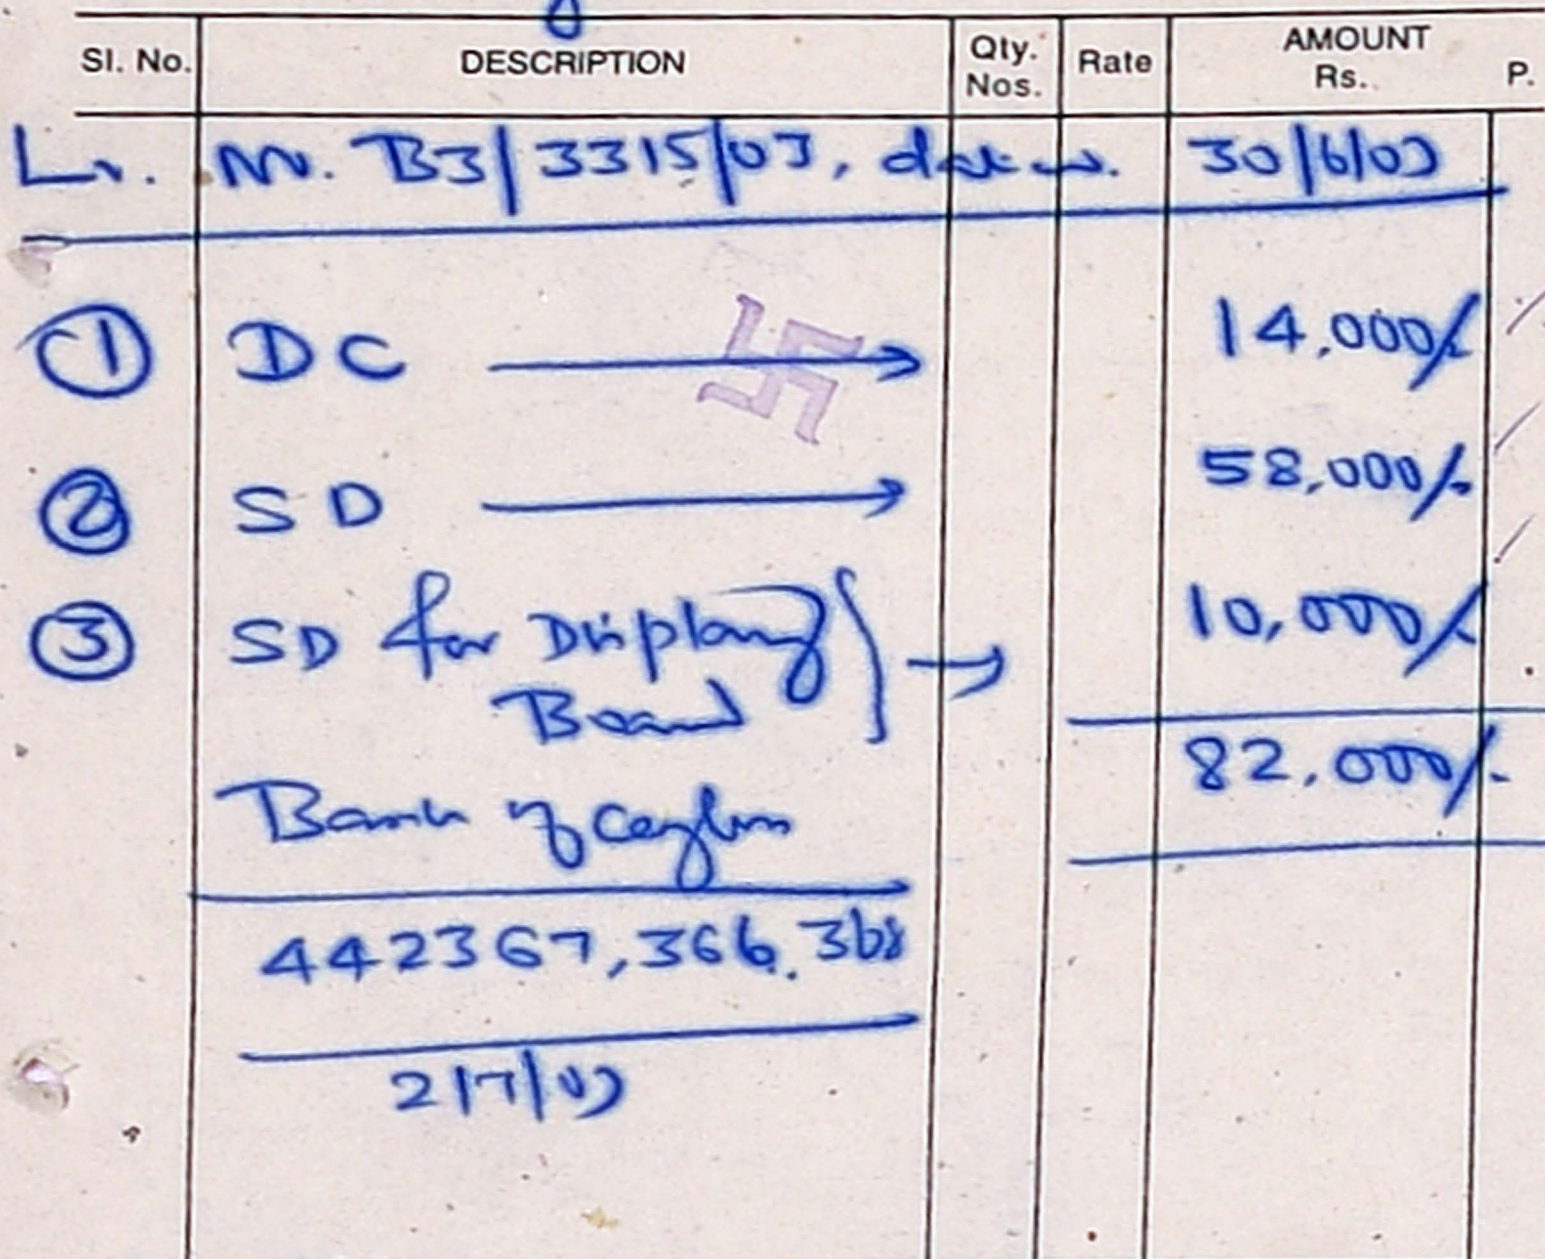 Sl. No. DESCRIPTION Qty. Nos. Rate AMOUNT Rs. P.
Lr. No. B3/3315/03, dated. 30/6/03
1 DC → 14,000/-
2 SD → 58,000/-
3 SD for Display } → 10,000/-
Board
82,000/-
Bank of Ceylon
442367, 366, 368
2/7/03